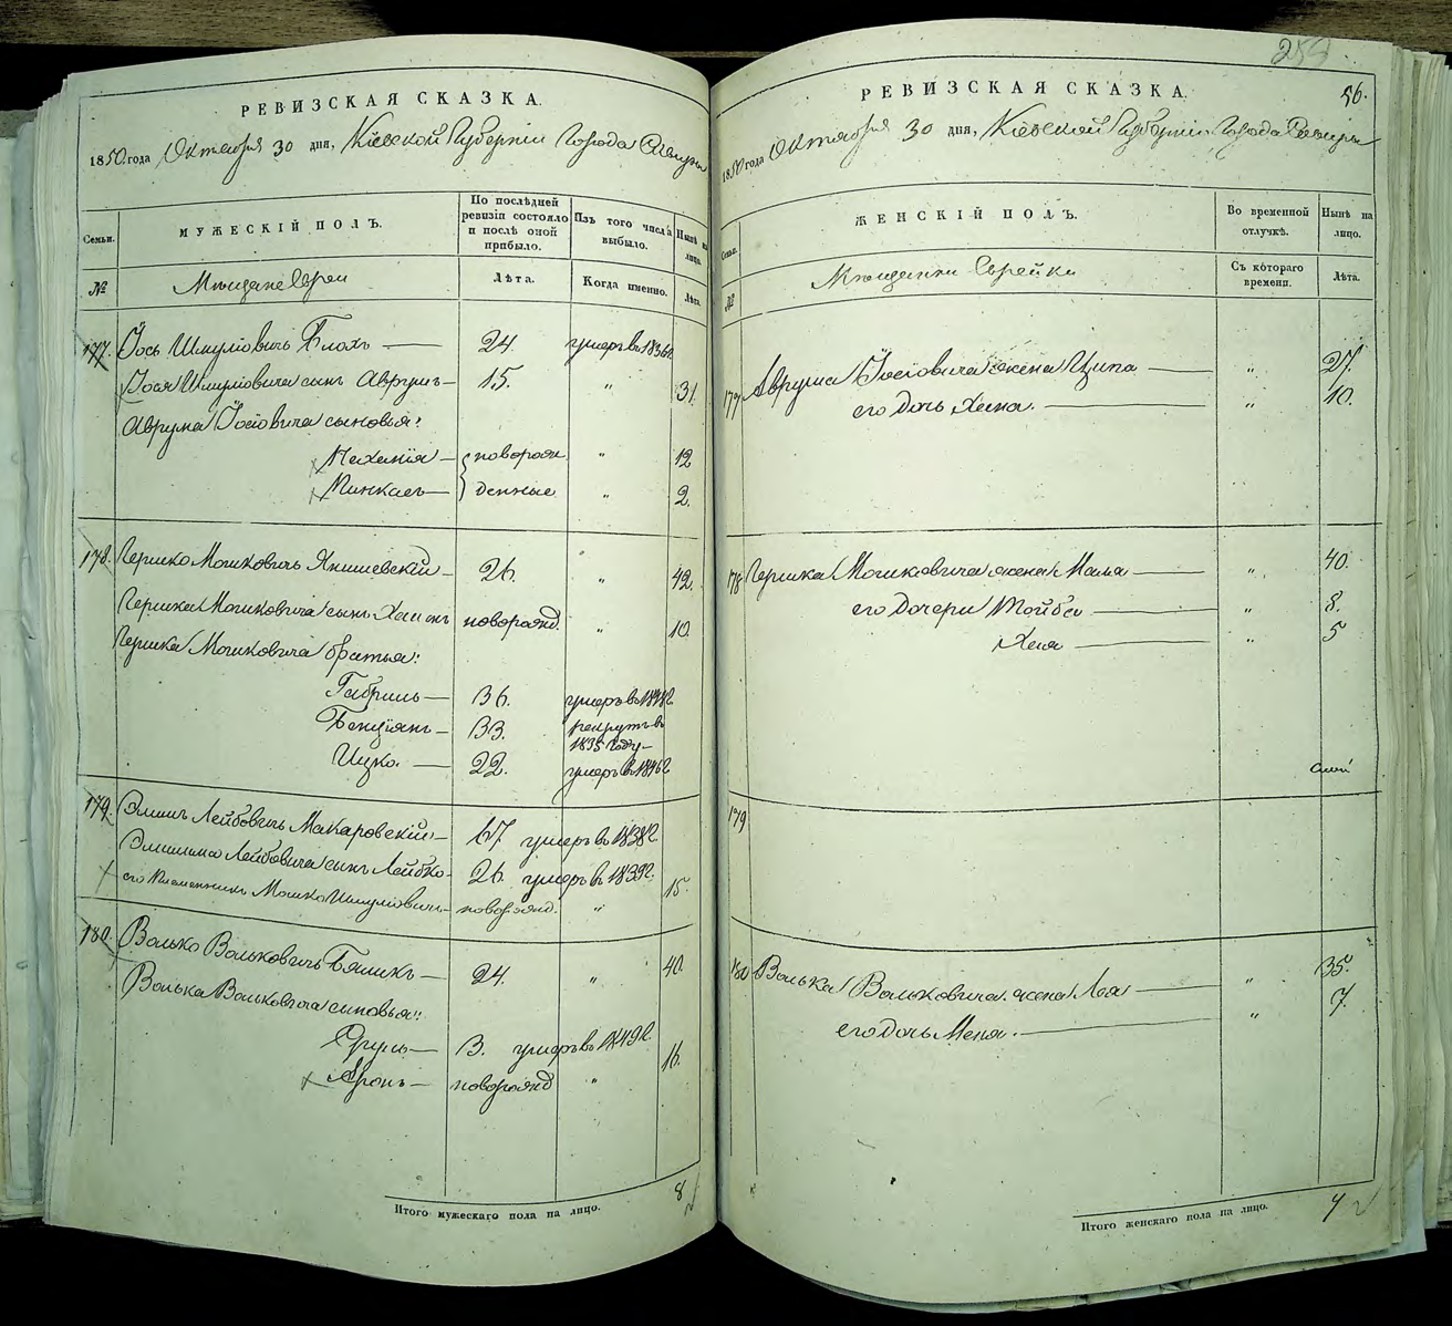 РЕВИЗСКАЯ СКАЗКА.
1850 года Октября 30 дня, Кіевской Губерніи Города Сквиры
Семьи.
МУЖЕСКІЙ ПОЛЪ.
По послѣдней ревизіи состояло и послѣ оной прибыло.
Изъ того числа выбыло.
Нынѣ на лицо.
№
Мѣщане Евреи
Лѣта.
Когда именно.
Лѣта.
177. Іось Шмуліовичь Блохъ — 24. умеръ въ 1836
Іося Шмуліовича сынъ Аврумъ — 15. " 31.
Аврума Іосіовича сыновья:
Нехемія — новорож " 12
Пинкасъ — денные " 2.
178. Гершко Мошковичь Янишевскій — 26. " 42.
Гершка Мошковича сынъ Хаимъ новорожд. " 10.
Гершка Мошковича братья:
Габриль — 36. умеръ въ
Бенціянъ — 33. рекрутъ въ 1835 году —
Ицко. — 22. умеръ въ 1846 г.
179. Элишъ Лейбовичь Макаровскій — 67 умеръ въ 1838 г.
Лейбовича сынъ Лейбко — 26. умеръ въ 1839 г.
его племянникъ Мошко Шмуліовичь — новорожд. " 15.
180. Волько Вольковичь Бяликъ — 24. " 40.
Волька Вольковича сыновья:
Сруль — 3. умеръ въ 1849 г.
Аронъ — новорожд " 16.
Итого мужескаго пола на лицо.
8
259
56.
РЕВИЗСКАЯ СКАЗКА.
1850 года Октября 30 дня, Кіевской Губерніи Города Сквиры
Семьи.
ЖЕНСКІЙ ПОЛЪ.
Во временной отлучкѣ.
Нынѣ на лицо.
№
Мѣщанки Еврейки
Съ котораго времени.
Лѣта.
177 Аврума Іосіовича жена Ципа — " 27.
его дочь Хана. — " 10.
178 Гершка Мошковича жена Маля — " 40.
его дочери Тойба — " 8.
Хая — " 5
179
180 Волька Вольковича жена Лея — " 35.
его дочь Меня. — " 7.
Итого женскаго пола на лицо.
7